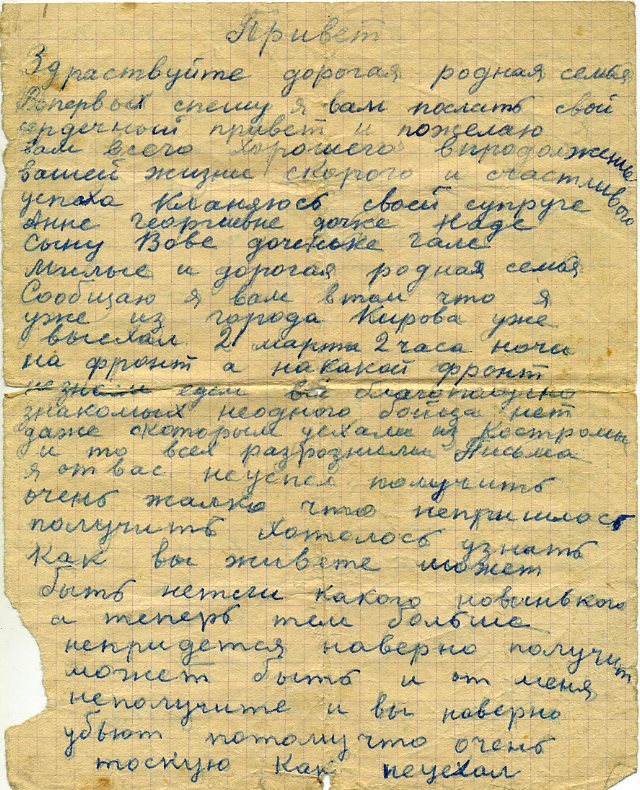 Привет
Здраствуйте дорогая родная семья
Вопервых спешу я вам послать свой
сердечный привет и пожелаю
вам всего хорошего впродолжение
вашей жизни скорого и счастливого
успаха Кланяюсь своей супруге
Анне георгиевне дочке Наде
Сыну Вове доченьке гале
Милые и дорогая родная семья
Сообщаю я вам втом что я
уже из города Кирова уже
выехал 2 марта 2 часа ночи
на фронт а накакой фронт
незнаем едем всё благополучно
знакомых неодного бойца нет
даже скоторым уехали из Костромы
и то всех разрознили Письма
я от вас неуспел получить
очень жалко что непришлось
получить хотелось узнать
Как вы живете может
быть нетли какого новинького
а теперь тем больше
непридется наверно получить
может быть и от меня
неполучите и вы наверно
убьют потому что очень
тоскую Как поехал